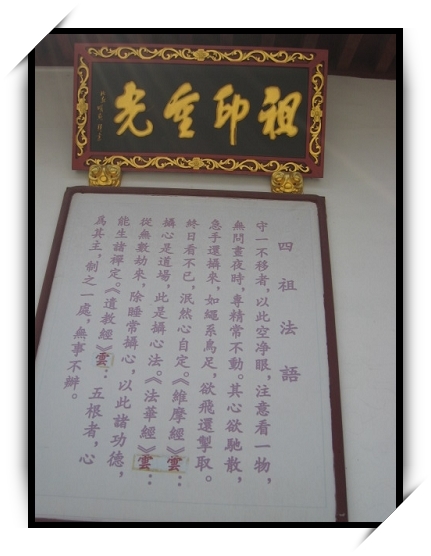 祖印重光
四祖法語
守一不移者，以此空净眼，注意看一物，
無問晝夜時，專精常不動。其心欲馳散，
急手還攝來，如繩系鳥足，欲飛還掣取。
終日看不已，泯然心自定。《維摩經》雲：
攝心是道場，此是攝心法。《法華經》雲：
從無數劫來，除睡常攝心，以此諸功德，
能生諸禪定。《遺教經》雲：五根者，心
爲其主，制之一處，無事不辦。